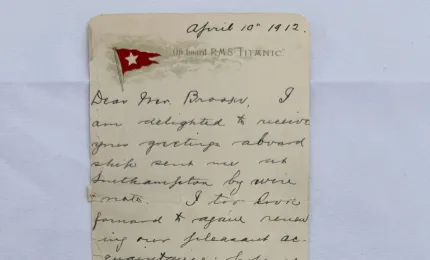 April 10th 1912.
On board R.M.S. TITANIC
Dear Mr. I
am delighted to receive
your greetings aboard
ship sent me at
Southampton by wire
+ note. I too look
forward to again renew
-ing our pleasant ac-